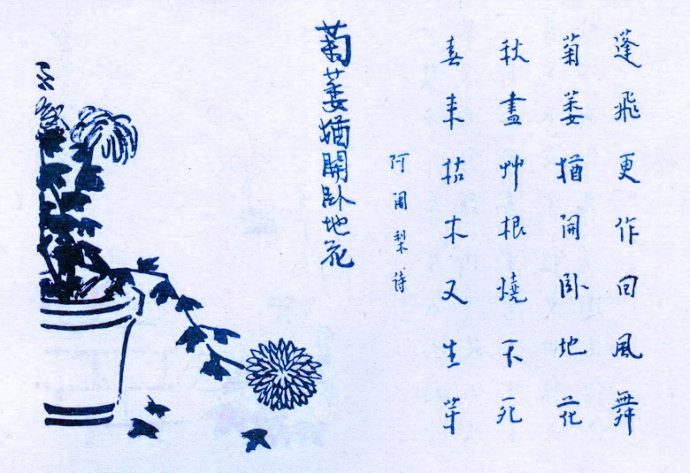 蓬飛更作回風舞
菊萎猶開卧地花
秋盡艸根燒不死
春来枯木又生芽
阿闍梨詩
菊萎猶開卧地花